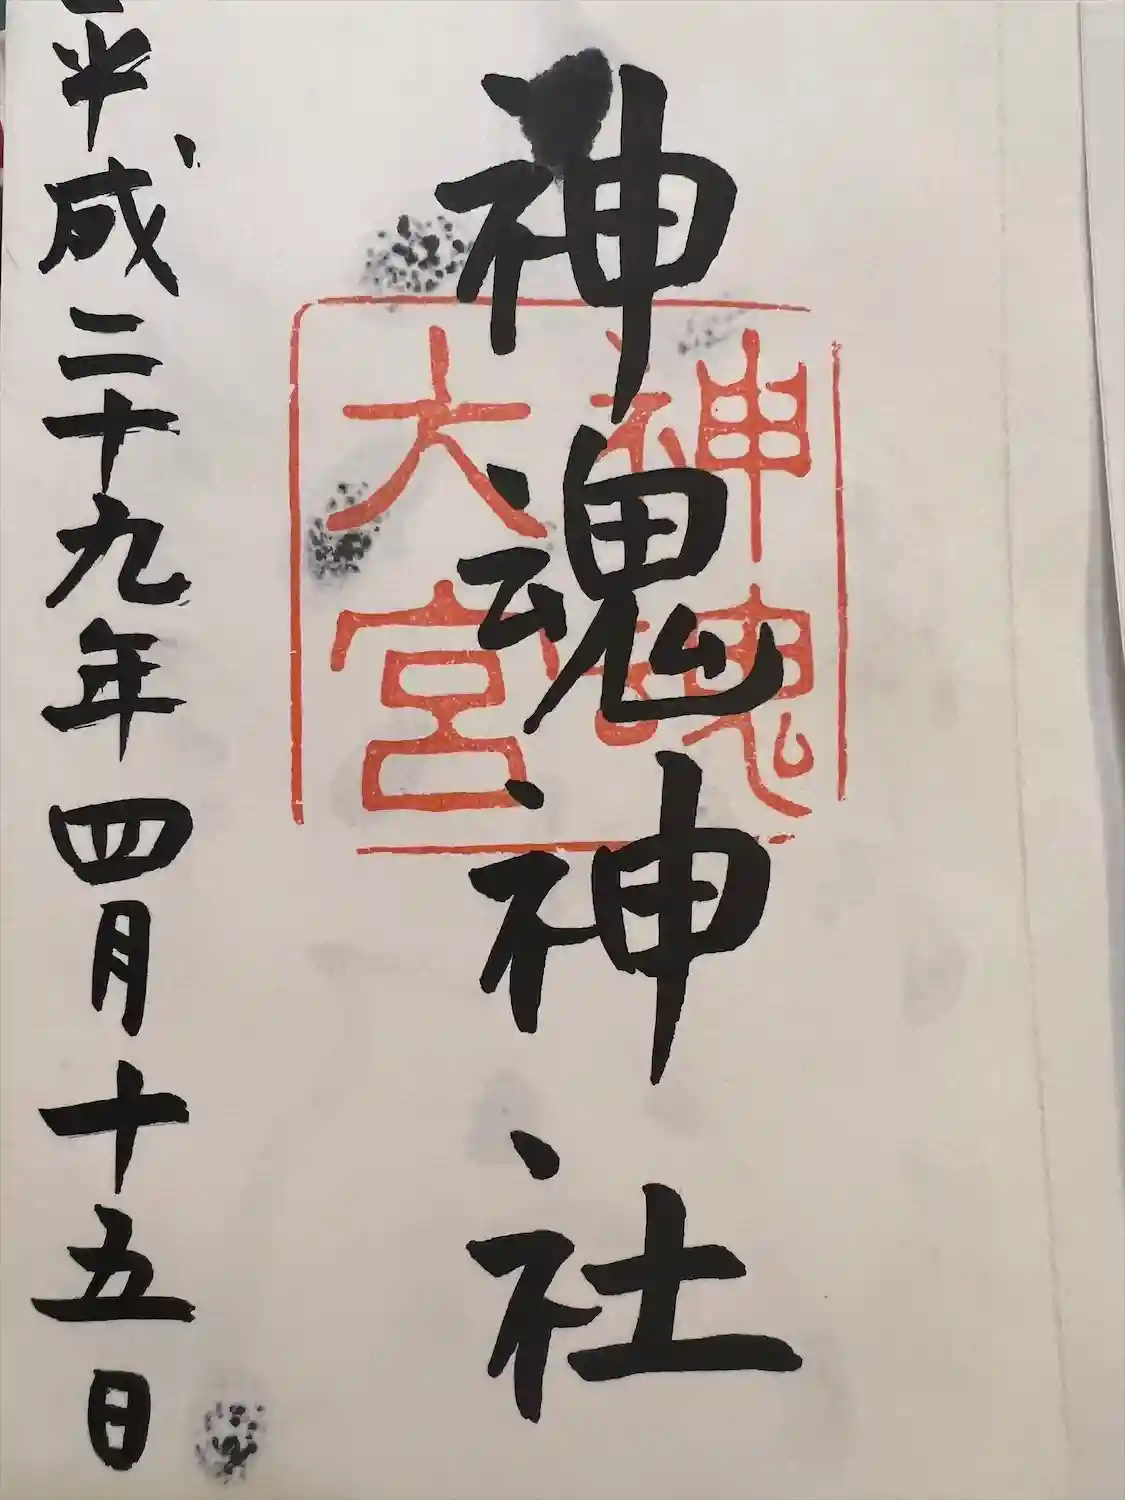 神魂神社
神魂
大宮
平成二十九年四月十五日